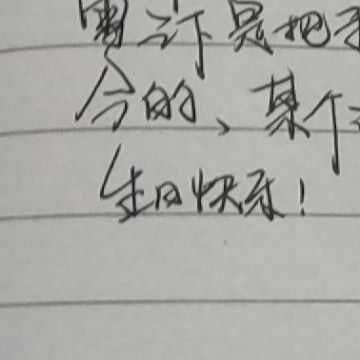 是把
今的、某个
生日快乐!